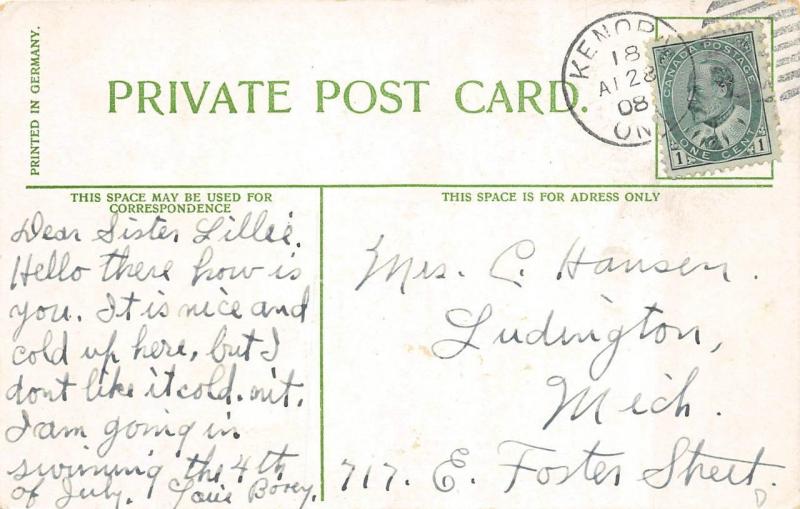 PRINTED IN GERMANY.
PRIVATE POST CARD.
KENORA
18
AP 28
08
ONT
CANADA POSTAGE
1 ONE CENT 1
THIS SPACE MAY BE USED FOR
CORRESPONDENCE
THIS SPACE IS FOR ADRESS ONLY
Dear Sister Lillie.
Hello there how is
you. It is nice and
cold up here, but I
dont like it cold. nit.
I am going in
swimming the 4th
of July.
Mrs. C. Hansen.
Ludington,
Mich.
717. E. Foster Street.